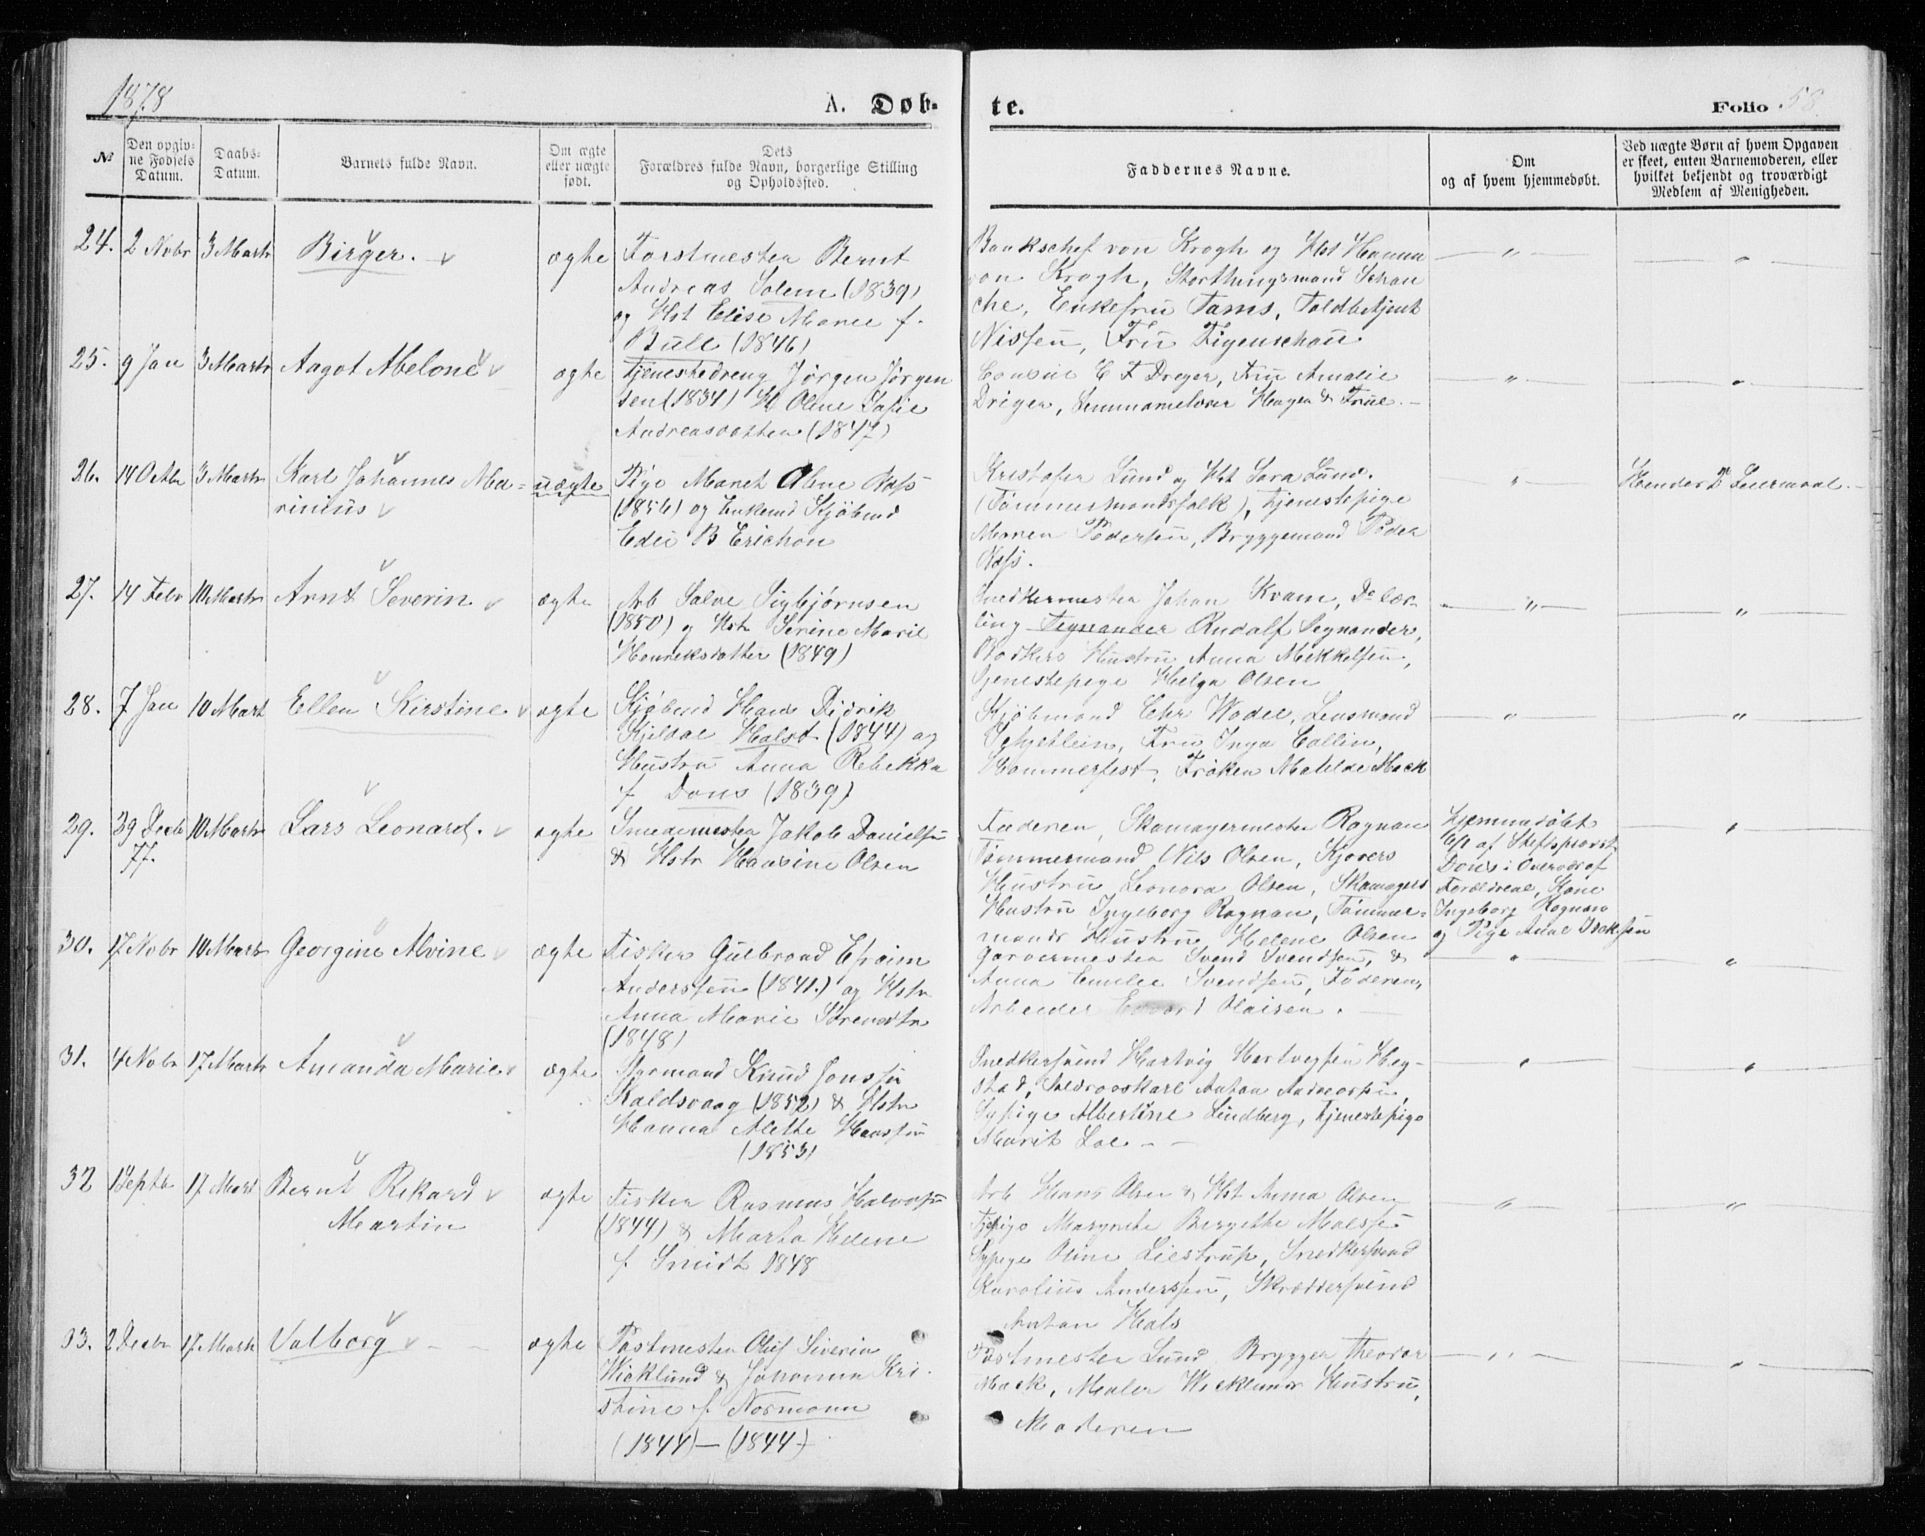 1878
A. Døb-
te.
Folio 58
№
Den opgiv-
ne Fødsels
Datum.
Daabs-
Datum.
Barnets fulde Navn.
Om ægte
eller uægte
født.
Dets
Forældres fulde Navn, borgerlige Stilling
og Opholdssted.
Faddernes Navne.
Om
og af hvem hjemmedøbt.
Ved uægte Børn af hvem Opgaven
er skeet, enten Barnemoderen, eller
hvilket bekjendt og troværdigt
Medlem af Menigheden.
24. 2 Novbr 3 Marts Birger. ægte
Forstmester Bernt
Andreas Solem (1839)
og Hst Elise Marie f.
Bull (1846)
Bankschef von Krogh og Hst Hanna
von Krogh, Storthingsmand Schan
che, Enkefru Tams, Toldbetjent
Nissen, Fru Figenschau
25. 9 Jan 3 Marts Aagot Abelone ægte
Tjenestedreng Jørgen Jørgen
sen (1834) H Oline Sofie
Andreasdatter (1847)
Consul C F Dreyer, Fru Amalie
Dreyer, Hagen & Frue.
26. 14 Octbr 3 Marts Karl Johannes Ma-
rinius uægte
Pige Maret Oline Næss
(1856) og Kjøbmd
B Erichson
Kristofer Lund og Hst Sara Lund.
(Tømmermandsfolk), Tjenestepige
Maren Pedersen, Bryggemand Peder
Næss.
Hendes 2 Leiermaal.
27. 14 Febr 10 Marts Arnt Severin ægte
Arb Salve Sigbjørnsen
(1850) og Hst Serine Marie
Henriksdatter (1849)
Snedkermester Johan Kvam, Do lær-
ling Tegnander Rudolf Segnander,
Bødkers Hustru Anna Mikkelsen,
Tjenestepige Helga Olsen
28. 7 Jan 10 Mart Ellen Kirstine ægte
Kjøbmd Hans Didrik
Kjeldal Halst (1844) og
Hustru Anna Rebekka
f Dons (1839)
Kjøbmand Chr Wadel, Lensmand
Schjetlein, Fru Inga Collin,
Hammerfest, Frøken Matilde Mack
29. 29 Decbr 10 Marts Lars Leonard. ægte
77.
Smedemester Jakob Danielsen
& Hstr Hansine Olsen
Faderen, Skomagermester Rognan
Tømmermand Nils Olsen, Kjørers
Hustru Leonora Olsen, Skomagers
Hustru Ingeborg Rognan, Tømmer-
mands Hustru Helene Olsen
Hjemmedøbt
af Stiftsprovst
Dons i Overvær af
Forældrene, Kone
Ingeborg Rognan
og Pige Anne Isaksen
30. 17 Novbr 10 Marts Georgine Alvine ægte
Fisker Gulbrand Efraim
Anderssen (1841.) og Hstr
Anna Marie Sørensdtr
(1848)
Garvermester Svend Svendsen, &
Anna Emilie Svendsen, Faderen,
Arbeider Edvard Olaisen.
31. 4 Novbr 17 Marts Amanda Marie ægte
Knud Jonssen
Kaldsvaag (1852) & Hstr
Hanna Alette Hanssen
(1853)
Snedkersvend Hartvig Hartvigsen Heg-
stad, Anton Andreassen,
Sypige Albertine Lindberg, Tjenestepige
Marit Loe -
32 1 Septb 17 Mart Bernt Rikard
Martin ægte
Fisker Rasmus Halvorsen
(1844) & Marta Helene
f Smidt 1848
Arb Hans Olsen & Hst Anna Olsen
Tjpige Margrete Bergethe Malsse
Sypige Oline Liestrup, Snedkersvend
Karolius Anderssen, Skræddersvend
Anton Hals
33. 2 Decbr 17 Marts Valborg ægte
Postmester Oluf Severin
Wicklund & Johanna Kri-
stine f Normann
(1844) - (1844)
Postmester Lund, Brygger Theodor
Mack, Maler Wicklunds Hustru,
Moderen